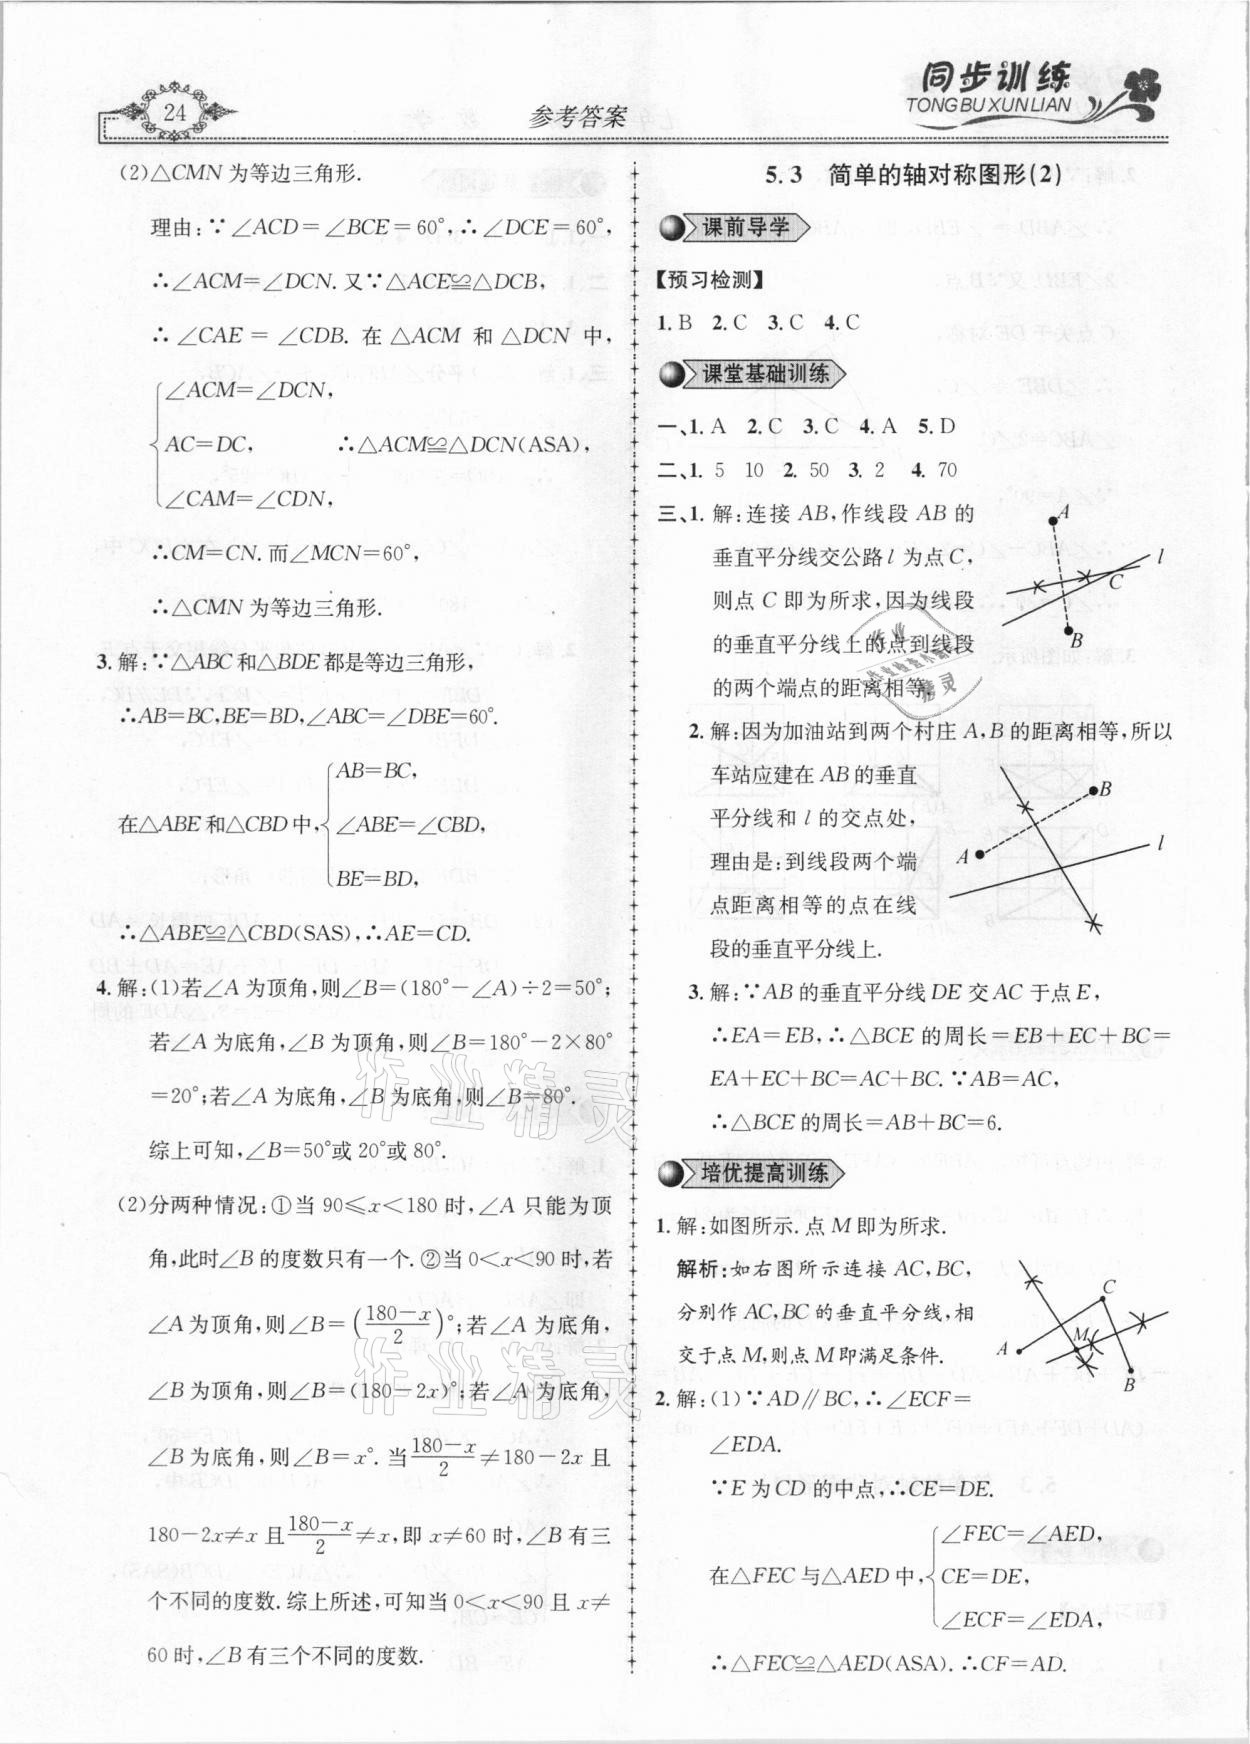 24
参考答案
同步训练
TONGBUXUNLIAN
(2)△CMN 为等边三角形.
理由:∵∠ACD=∠BCE=60°,∴∠DCE=60°,
∴∠ACM=∠DCN.又∵△ACE≌△DCB,
∴∠CAE=∠CDB. 在△ACM 和△DCN 中,
∠ACM=∠DCN,
AC=DC, ∴△ACM≌△DCN(ASA),
∠CAM=∠CDN,
∴CM=CN.而∠MCN=60°,
∴△CMN 为等边三角形.
3.解:∵△ABC和△BDE都是等边三角形,
∴AB=BC,BE=BD,∠ABC=∠DBE=60°.
AB=BC,
在△ABE 和△CBD 中, ∠ABE=∠CBD,
BE=BD,
∴△ABE≌△CBD(SAS),∴AE=CD.
4.解:(1)若∠A 为顶角,则∠B=(180°-∠A)÷2=50°;
若∠A 为底角,∠B 为顶角,则∠B=180°-2×80°
=20°;若∠A 为底角,∠B 为底角,则∠B=80°.
综上可知,∠B=50°或 20°或 80°.
(2)分两种情况:①当 90≤x<180 时,∠A 只能为顶
角,此时∠B 的度数只有一个.②当 0<x<90 时,若
∠A 为顶角,则∠B=((180-x)/2)°;若∠A 为底角,
∠B 为顶角,则∠B=(180-2x)°;若∠A 为底角,
∠B 为底角,则∠B=x°. 当(180-x)/2≠180-2x 且
180-2x≠x 且(180-x)/2≠x,即 x≠60 时,∠B 有三
个不同的度数.综上所述,可知当 0<x<90 且 x≠
60 时,∠B 有三个不同的度数.
5.3 简单的轴对称图形(2)
课前导学
【预习检测】
1.B 2.C 3.C 4.C
课堂基础训练
一、1.A 2.C 3.C 4.A 5.D
二、1.5 10 2.50 3.2 4.70
三、1.解:连接 AB,作线段 AB 的
垂直平分线交公路 l 为点 C,
则点 C 即为所求,因为线段
的垂直平分线上的点到线段
的两个端点的距离相等.
A
l
C
B
2.解:因为加油站到两个村庄 A,B 的距离相等,所以
车站应建在 AB 的垂直
平分线和 l 的交点处,
理由是:到线段两个端
点距离相等的点在线
段的垂直平分线上.
B
A
l
3.解:∵AB 的垂直平分线 DE 交 AC 于点 E,
∴EA=EB,∴△BCE 的周长=EB+EC+BC=
EA+EC+BC=AC+BC.∵AB=AC,
∴△BCE 的周长=AB+BC=6.
培优提高训练
1.解:如图所示.点 M 即为所求.
解析:如右图所示连接 AC,BC,
分别作 AC,BC 的垂直平分线,相
交于点 M,则点 M 即满足条件.
C
M
A
B
2.解:(1)∵AD∥BC,∴∠ECF=
∠EDA.
∵E 为 CD 的中点,∴CE=DE.
∠FEC=∠AED,
在△FEC 与△AED 中, CE=DE,
∠ECF=∠EDA,
∴△FEC≌△AED(ASA).∴CF=AD.
作业精灵
作业精灵
作业
精灵